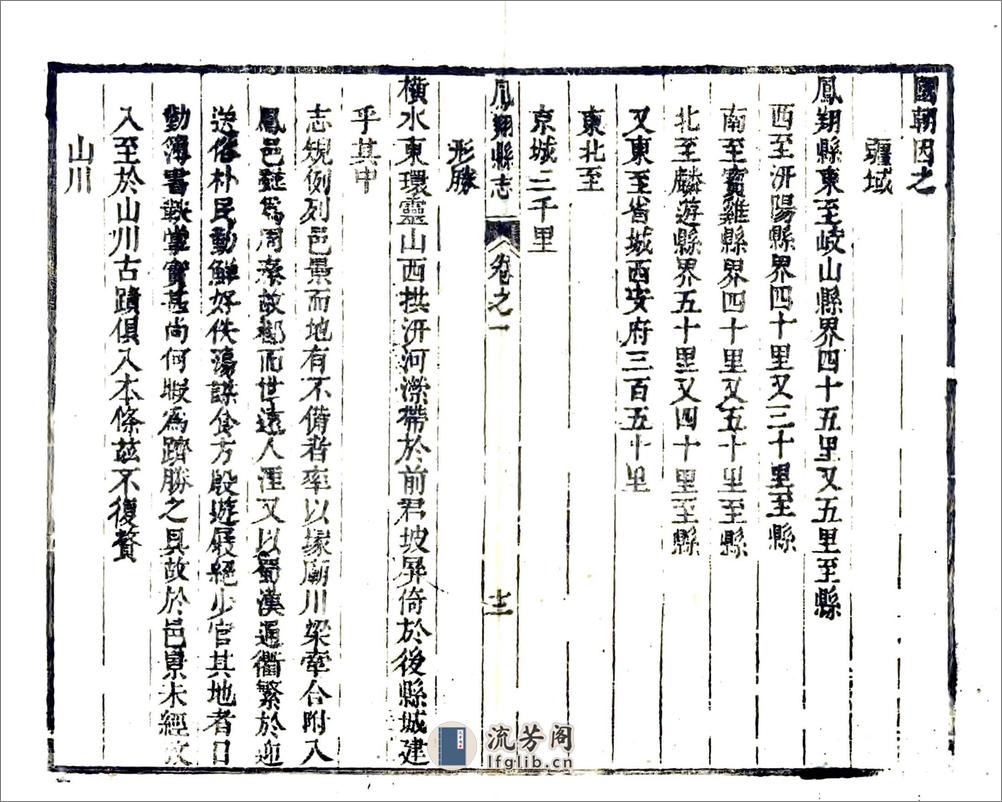 國朝因之
疆域
鳳翔縣東至岐山縣界四十五里又五里至縣
西至汧陽縣界四十里又三十里至縣
南至寶雞縣界四十里又五十里至縣
北至麟遊縣界五十里又四十里至縣
又東至省城西安府三百五十里
東北至
京城三千里
鳳翔縣志
卷之一
十三
形勝
橫水東環靈山西拱汧河濴帶於前君坡屏倚於後縣城建
乎其中
志規例列邑景而地有不備者率以緣廟川梁牽合附入
鳳邑雖為周秦故都而世遠人湮又以蜀漢通衢繁於迎
送俗朴民勤鮮好佚蕩謀食方殷遊屐絕少官其地者日
勤簿書鞅掌實甚尚何暇為躋勝之具故於邑景未經
入至於山川古蹟俱入本條茲不復贅
山川
流芳阁
lfglib.cn